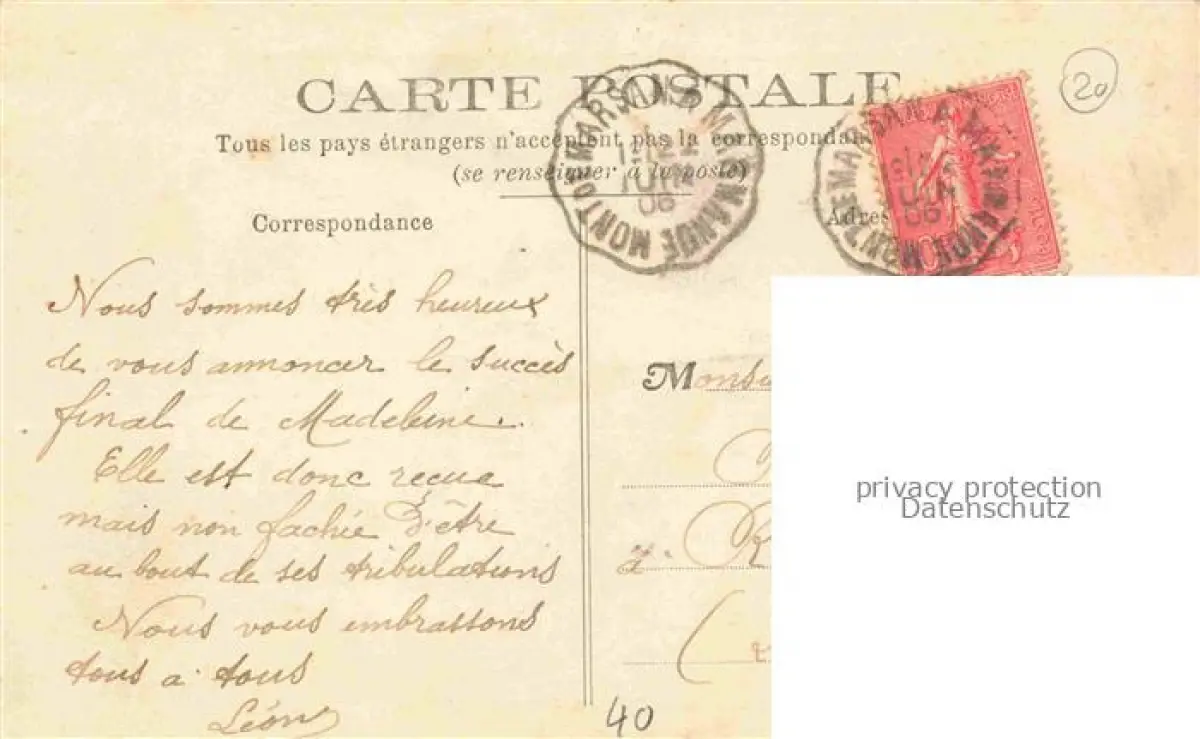 20
CARTE POSTALE
Tous les pays étrangers n'acceptent pas la correspondan
(se renseigner à la poste)
MONT DE MARSAN A MARMANDE
JUIN
06
MARSAN A MARMANDE MONT DE
JUIN
06
Correspondance
Adres
Nous sommes très heureux
de vous annoncer le succès
final de Madeleine.
Elle est donc reçue
mais non fachée d'être
au bout de ses tribulations
Nous vous embrassons
tous a tous
Léon
Monsi
à
R
(
40
privacy protection
Datenschutz